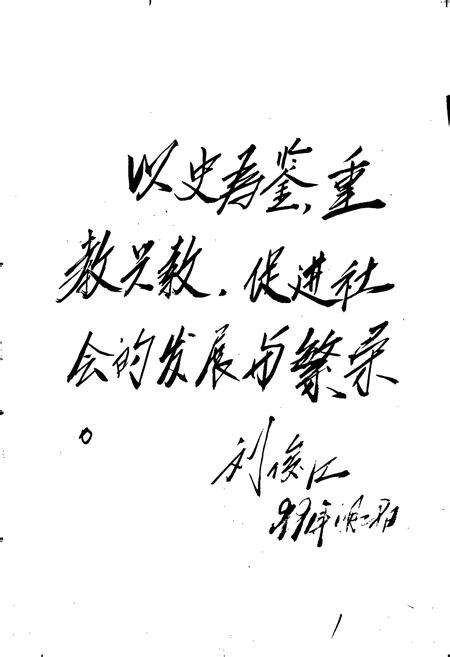 以史为鉴,重
教兴教,促进社
会的发展与繁荣
。
刘俊江